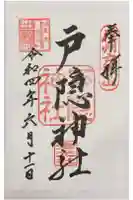 奉拝
戸隠神社
令和四年六月十一日